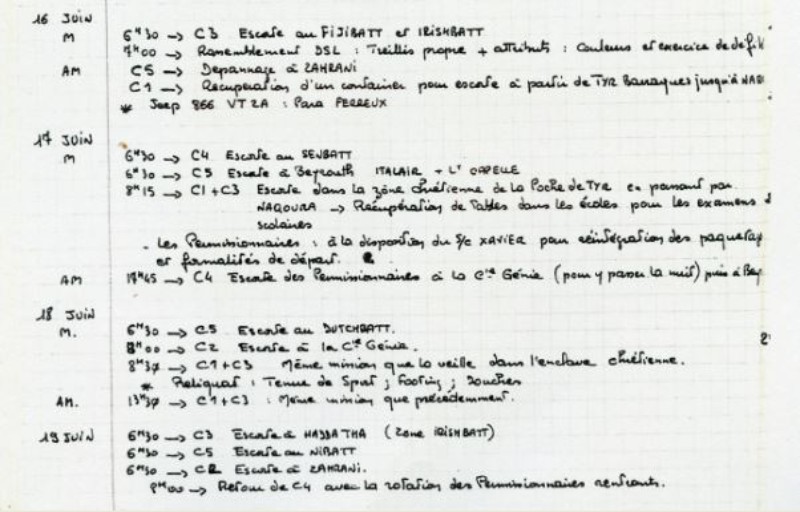 16 JUIN
M 6H30 → C3 Escorte au FIJIBATT et IRISHBATT
7H00 → Rassemblement DSL : Treillis propre + attributs : Couleurs et exercice de défil
AM C5 → Depannage à ZAHRANI
C1 → Recuperation d'un container pour escorte à partir de TYR Baraques jusqu'à NA
* Jeep 866 VT2A : Para PERREUX
17 JUIN
M 6H30 → C4 Escorte au SENBATT
6H30 → C5 Escorte à Beyrouth ITALAIR + Lt CAPELLE
8H15 → C1+C3 Escorte dans la zône chrétienne de la Poche de TYR en passant par
NAQOURA → Récupération de Tables dans les écoles pour les examens
scolaires
- Les Permissionnaires : à la disposition du S/c XAVIER pour réintégration des paquetag
et formalités de départ.
AM 17H45 → C4 Escorte des Permissionnaires à la Cie Génie (pour y passer la nuit) puis à Bey
18 JUIN
M. 6H30 → C5 Escorte au DUTCHBATT.
8H00 → C2 Escorte à la Cie Génie.
8H30 → C1+C3 Même mission que la veille dans l'enclave chrétienne.
* Reliquat : Tenue de Sport ; footing ; Douches
AM. 13H30 → C1+C3 : Même mission que précédemment.
19 JUIN 6H30 → C3 Escorte à HADDATHA (zone IRISHBATT)
6H30 → C5 Escorte au NIBATT
6H30 → C2 Escorte à ZAHRANI.
9H00 → Retour de C4 avec la rotation des Permissionnaires rentrants.